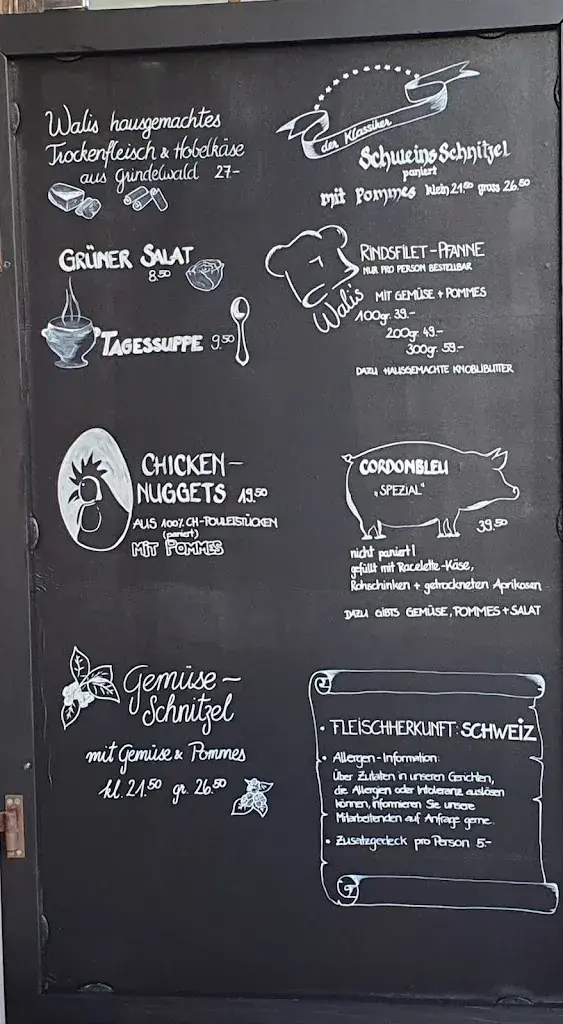 Walis hausgemachtes
Trockenfleisch & Hobelkäse
aus Grindelwald 27-
GRÜNER SALAT
8.50
TAGESSUPPE 9.50
CHICKEN-
NUGGETS 19.50
AUS 100% CH-POULETSTÜCKEN
(paniert)
MIT POMMES
Gemüse-
Schnitzel
mit Gemüse & Pommes
kl. 21.50 gr. 26.50
der Klassiker
Schweins Schnitzel
paniert
mit Pommes klein 21.50 gross 26.50
RINDSFILET-PFANNE
NUR PRO PERSON BESTELLBAR
Walis
MIT GEMÜSE + POMMES
100gr. 39.-
200gr. 49.-
300gr. 59.-
DAZU HAUSGEMACHTE KNOBLIBUTTER
CORDONBLEU
„SPEZIAL"
39.50
nicht paniert!
gefüllt mit Racelette-Käse,
Rohschinken + getrockneten Aprikosen
DAZU GIBTS GEMÜSE, POMMES + SALAT
• FLEISCHHERKUNFT: SCHWEIZ
• Allergen-Information:
Über Zutaten in unseren Gerichten,
die Allergien oder Intoleranz auslösen
können, informieren Sie unsere
Mitarbeitenden auf Anfrage gerne.
• Zusatzgedeck pro Person 5.-